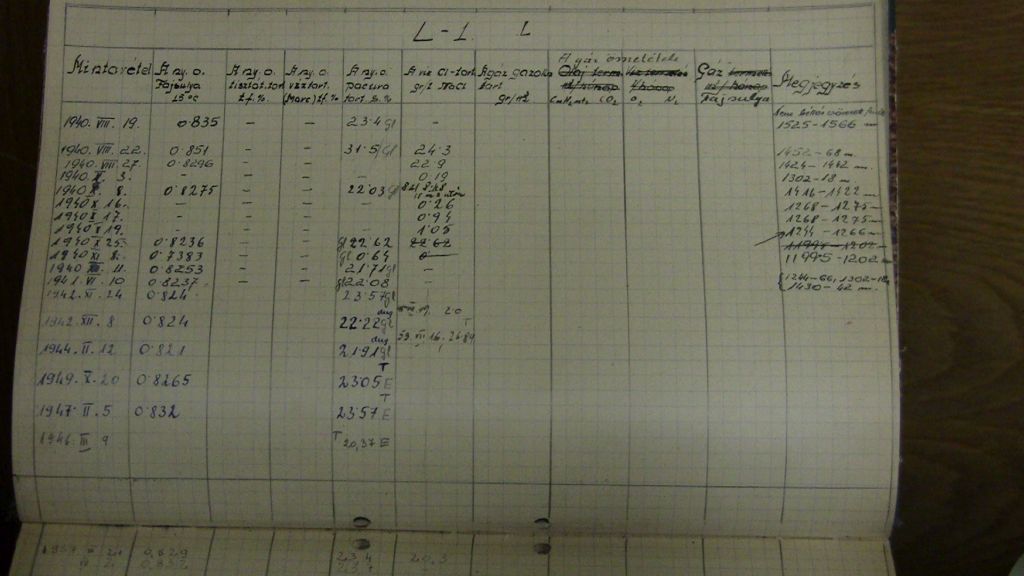 L-1. L
Mintavétel A ny. o. A ny. o. A ny. o. A ny. o. A víz Cl-tart. A gáz gazolin A gáz összetétele Gáz Megjegyzés
Fajsúlya tisztat.tart víztart. pacura gr/l NaCl tart
15 °C s.f. % (Marc) s.f. % tart. s. % gr/m3 CO2 O2 N2 Fajsulya
1940. VIII. 19. 0.835 - - 23.4 gl - 1525-1566 m
1940. VIII. 22. 0.851 - - 31.5 gl 24.3 1452-68 m
1940. VIII. 27. 0.8296 - - 22.9 1424-1442 m
1940. X. 3. - - - 0.19 1302-18 m
1940 X. 8. 0.8275 - - 22.03 gl 1416-1422 m
1940 X 16. - - - 0.26 1268-1275 m
1940 X 17. - - - 0.94 1268-1275 m
1940 X 19. - - - 1.05 1244-1266 m
1940 X 25. 0.8236 - - gl 22.62 22.62 1199.5-1202 m
1940 XI 8. 0.7383 - - gl 0.64 0 1199.5-1202 m
1940 XII. 11. 0.8253 - - 21.71 gl -
1941. VI. 10 0.8237 - - gl 22.08 1244-66, 1302-18,
1942. XI. 24 0.824 23.57 gl 1430-42 m
1942. XII. 8 0.824 22.22 gl 20
1944. II. 12 0.821 21.91 gl
T
1949. X. 20 0.8265 23.05 E
T
1947. II. 5 0.832 23.57 E
1946. III 9 T 20,37 E
0.829 23.4 20.3
0.832